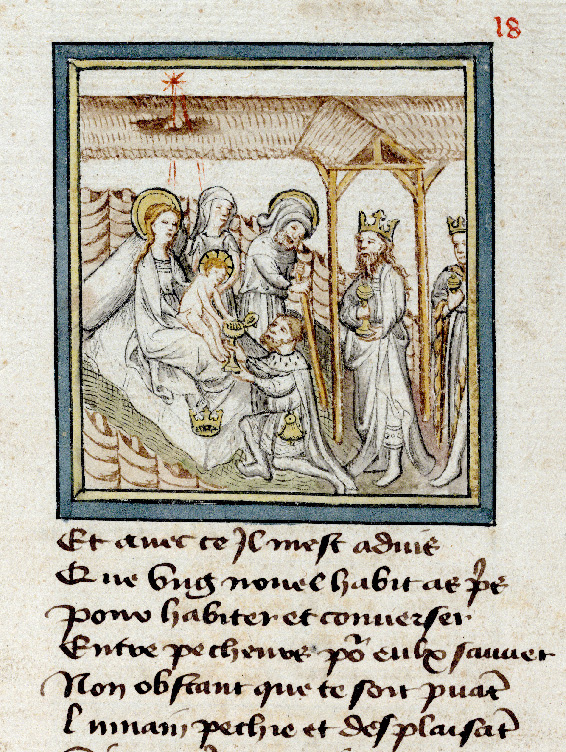 18
Et auec ce Il mest aduis
Que vng nouel habit as pͥs
Pour habiter et conuerser
Entre pecheurs po᷑ eulx sauuer
Non obstant que ce soit puāt
Lumain pechie et desplaisāt